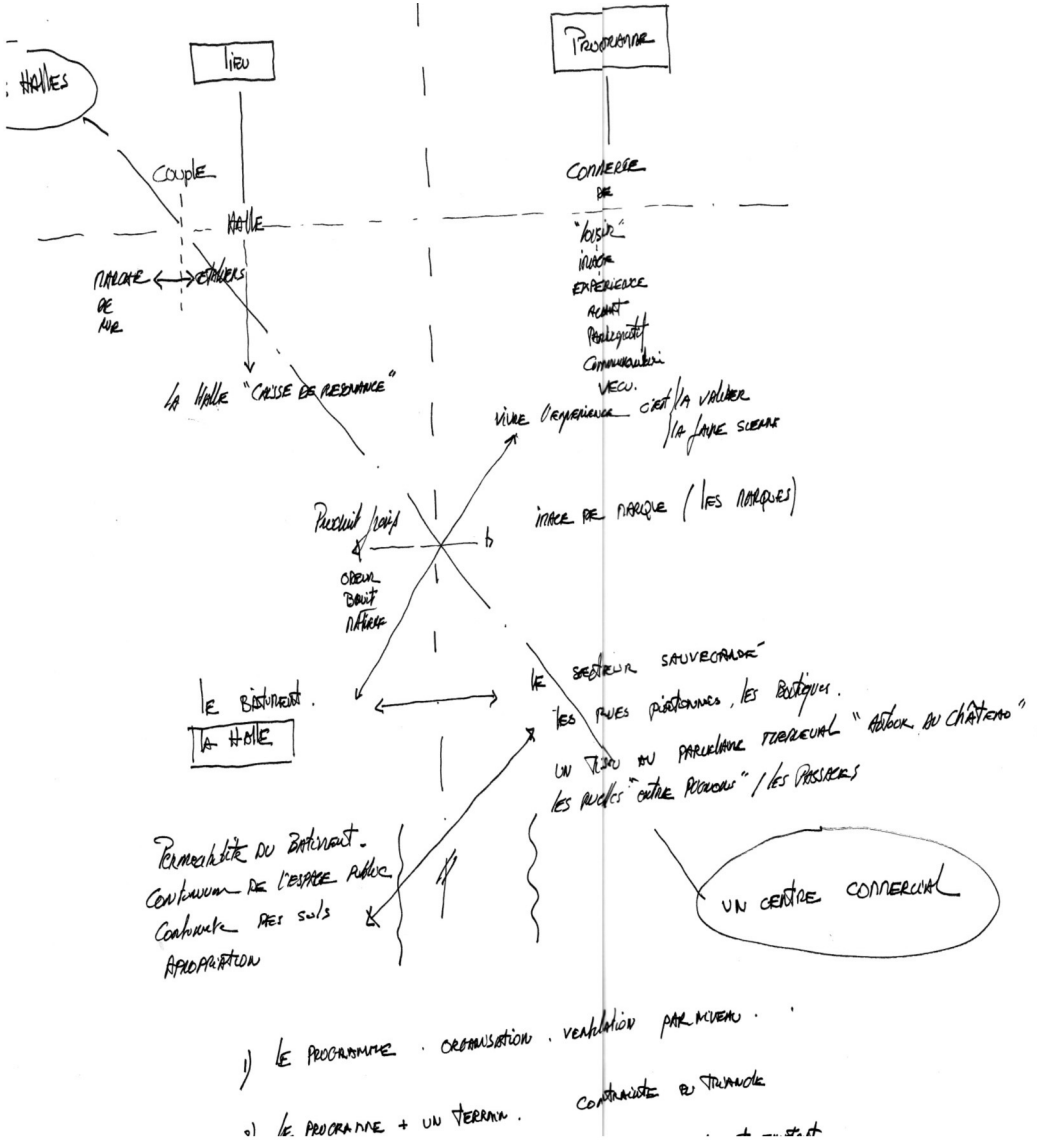 : HALLES
LIEU
PROGRAMME
COUPLE
HALLE
MARCHE
DE
ETALIERS
LA HALLE "CAISSE DE RESONANCE"
COMMERCE
DE
"LOISIR"
IMAGE
EXPERIENCE
ACHAT
Participatif
VECU.
VIVRE l'EXPERIENCE C'EST LA VALIDER
LA FAIRE SIENNE
Produit frais
ODEUR
BRUIT
IMAGE DE MARQUE (LES MARQUES)
LE BÂTIMENT.
LA HALLE
LE SECTEUR SAUVEGARDÉ
LES RUES piétonnes, LES Boutiques.
UN AU PARCELLAIRE MEDIEVAL "AUTOUR DU CHÂTEAU"
LES RUELLES "ENTRE PIGNONS" / LES PASSAGES
Permeabilité DU BATIMENT.
CONTINUUM DE L'ESPACE PUBLIC
Continuite DES SOLS
APROPRIATION
UN CENTRE COMMERCIAL
1) LE PROGRAMME . ORGANISATION . VENTILATION PAR NIVEAU .
LE PROGRAMME + UN TERRAIN. CONTRAINTE DU TRIANGLE